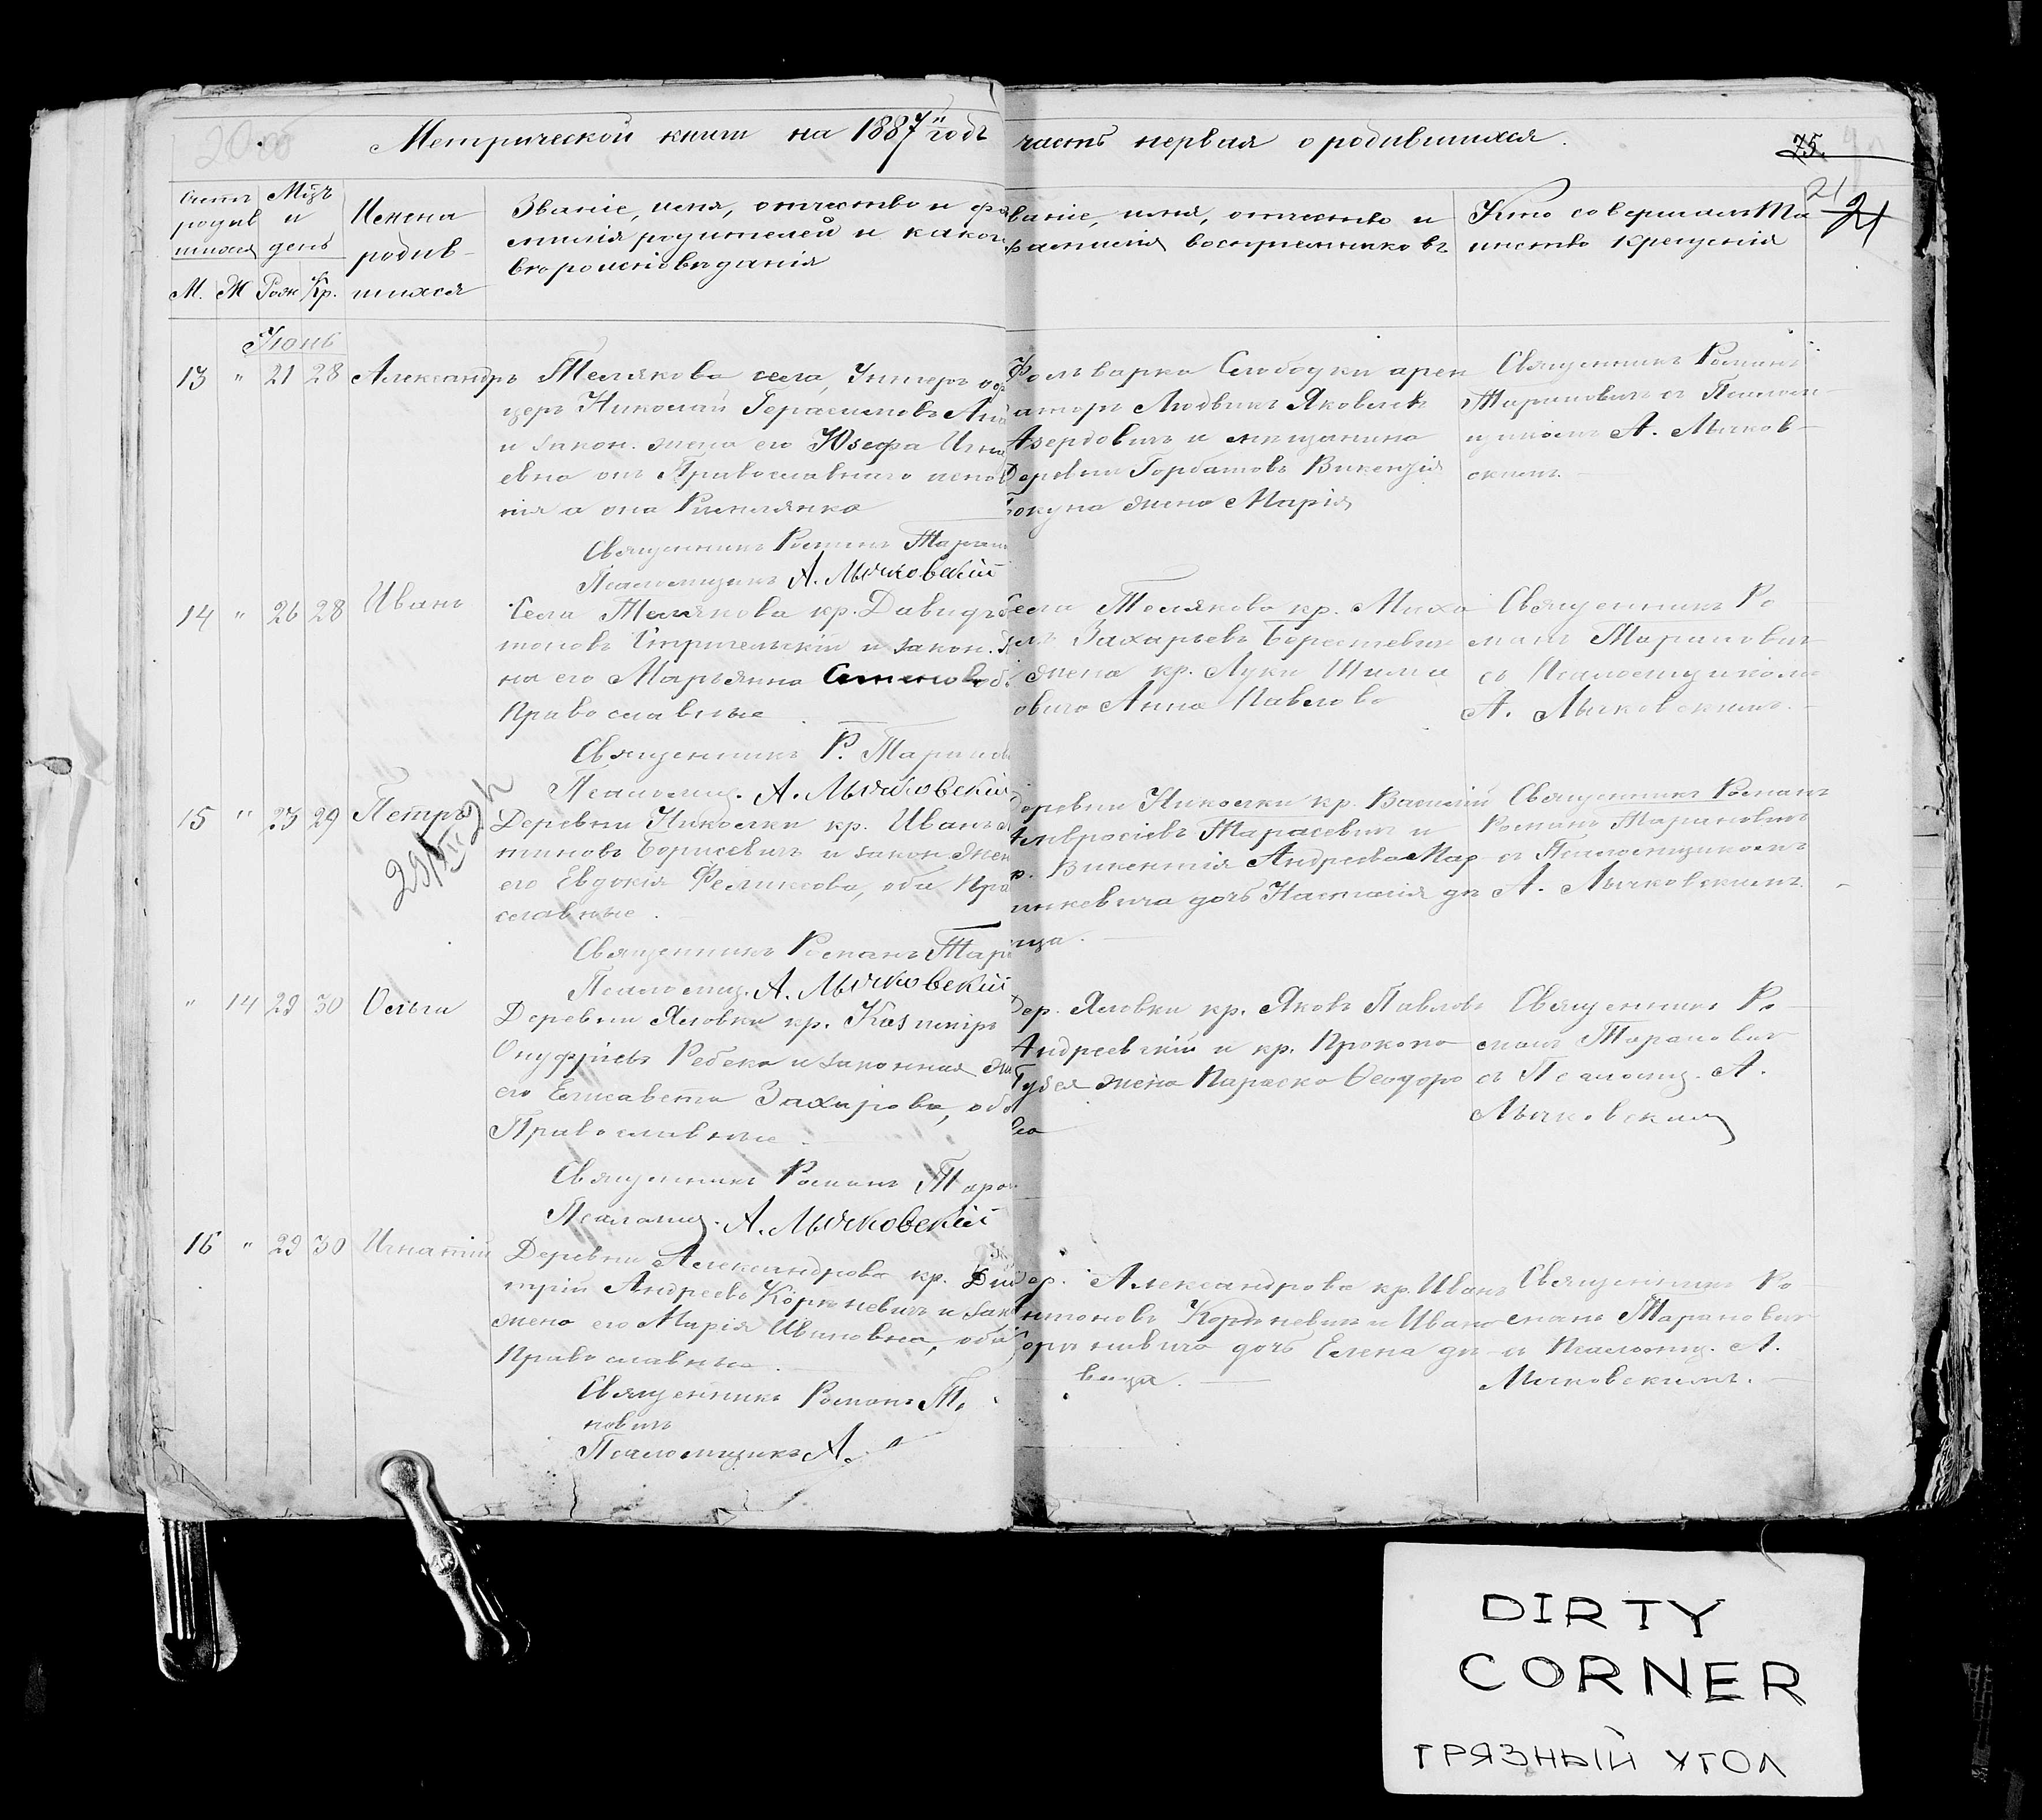 Метрической книги на 1887й годъ
часть первая о родившихся.
75.
21
21
Счетъ
родив
шихся
М. Ж
Мцъ
и
день
Рож Кр.
Имена
родив-
шихся
Званіе, имя, отчество и фа
милія родителей и какого
вѣроисповѣданія
Званіе, имя, отчество и
фамилія воспріемниковъ
Кто совершалъ Та
инство крещенія
Іюнь
13 " 21 28 Александръ
Телякова села, Унтеръ оф
церъ Николай Герасимовъ
и закон. жена его Юзефа
евна онъ Православнаго испов
нія а она Римлянка
Священникъ Романъ Таран
Псаломщикъ А. Мычковскій
Фольварка Слободки арен
аторъ Людвикъ Яковлевъ
и мещанина
Деревни Горбатовъ Викентія
жена Марія
Священникъ Романъ
Тарановичъ съ Псалом-
щикомъ А. Мычков-
скимъ.
14 " 26 28 Иванъ
Села Телякова кр. Давидъ
тоновъ и закон. ж
на его Марьянна Семенов об
Православные
Священникъ Р. Таранов
Псаломщ. А. Мычковскій
Села Телякова кр. Миха
илъ Захарьевъ Берестевичъ
жена кр. Луки Шима
овича Анна Павлова
Священникъ Ро
манъ Тарановичъ
съ Псаломщикомъ
А. Мычковскимъ.
15 " 23 29 Петръ
Деревни Николки кр. Иванъ
тиновъ Борисевичъ и закон. жен
его Евдокія Феликсова, оба Пра
славные.
Священникъ Романъ Тара
Псаломщ. А. Мычковскій
Деревни Николки кр. Василій
Амвросіевъ Тарасевичъ и
кр. Викентія Андреева Мар
цинкевича дочь Настасія дѣ
ица.
Священникъ Романъ
Романъ Тарановичъ
съ Псаломщикомъ
А. Мычковскимъ.
" 14 29 30 Ольга
Деревни Яловки кр. Казиміръ
Онуфріевъ Ребека и законная же
его Елисавета Захарова, оба
Православные
Священникъ Романъ Таран
Псаломщ. А. Мычковскій
Дер. Яловки кр. Яковъ Павловъ
Андреевскій и кр. Прокопа
Губея жена Параска Ѳеодоро
ва
Священникъ Ро
манъ Тарановичъ
съ Псаломщ. А.
Мычковскимъ
16 " 29 30 Игнатій
Деревни Александрова кр. Дми
трій Андреевъ Корженевичъ и зак
жена его Марія Ивановна, оба
Православные.
Священникъ Романъ Та
новичъ
Псаломщикъ А.
Дер. Александрова кр. Иванъ
Антоновъ Корженевичъ и Ивана
дочь Елена дѣ
вица.
Священникъ Ро
манъ Тарановичъ
съ Псаломщ. А.
Мычковскимъ.
DIRTY
CORNER
ГРЯЗНЫЙ УГОЛ